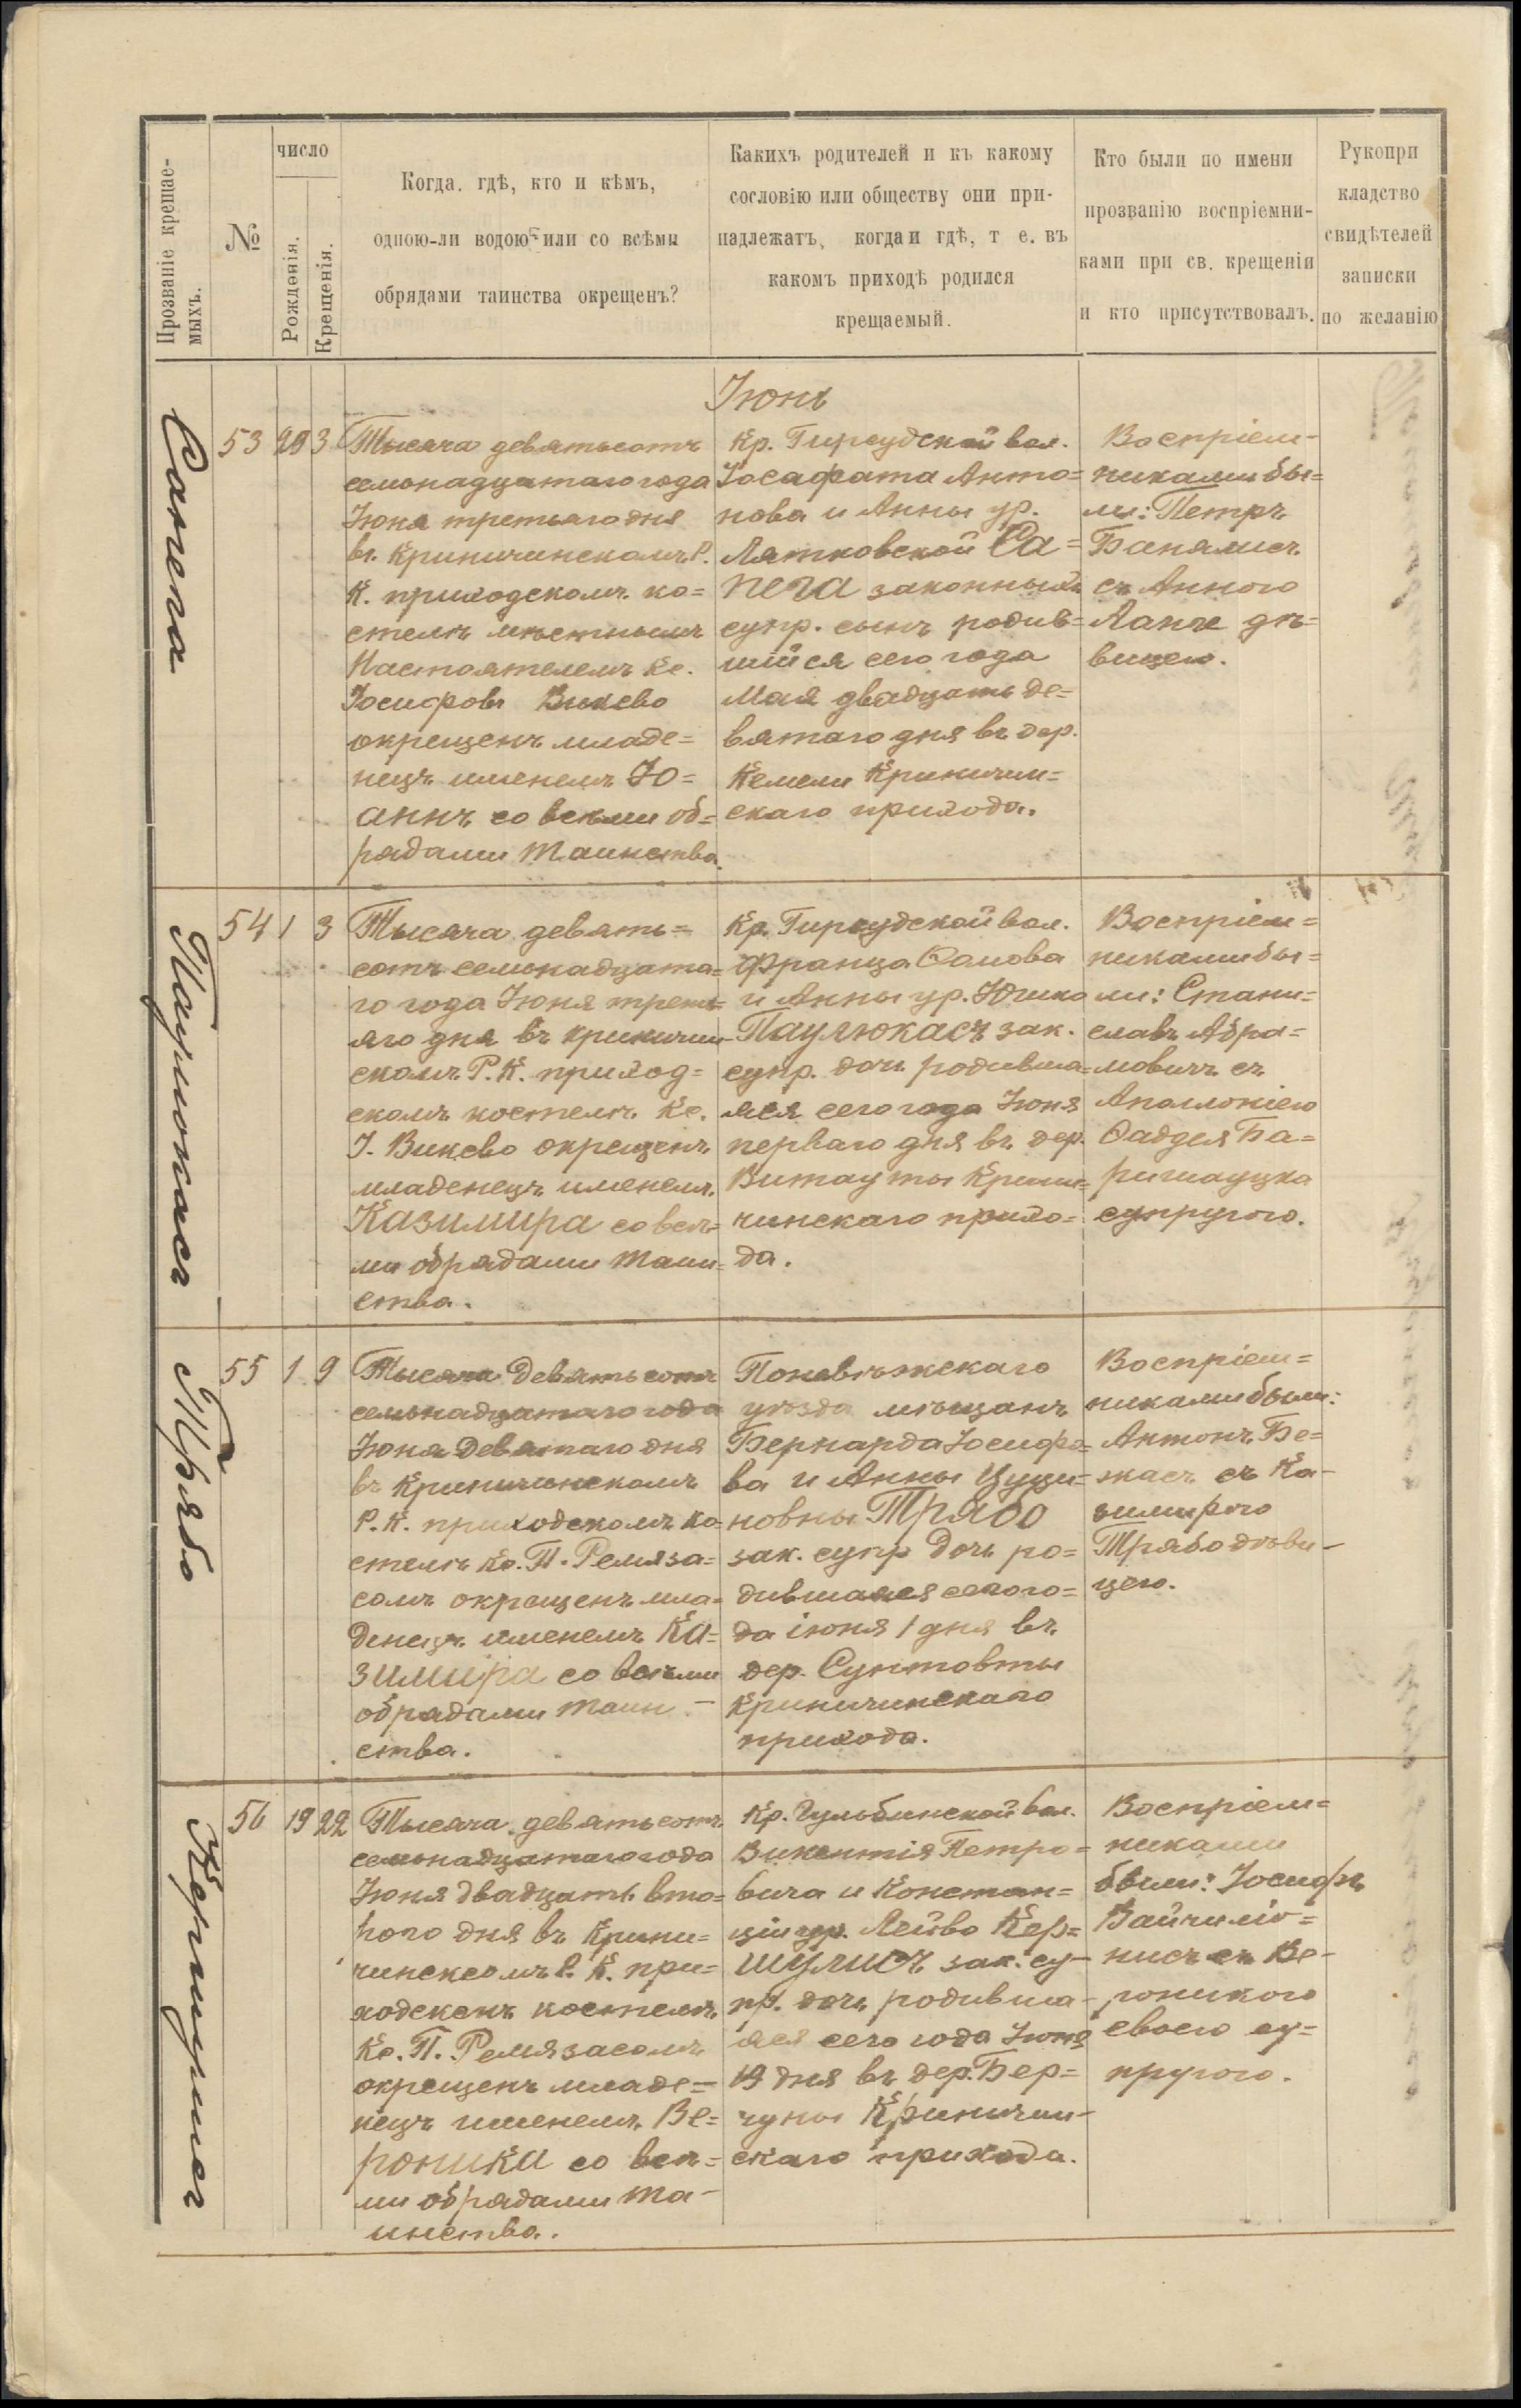 Прозваніе крещае-
мыхъ.
№
число
Рожденія.
Крещенія.
Когда, гдѣ, кто и кѣмъ,
одною-ли водою или со всѣми
обрядами таинства окрещенъ?
Какихъ родителей и къ какому
сословію или обществу они при-
надлежатъ, когда и гдѣ, т е. въ
какомъ приходѣ родился
крещаемый.
Кто были по имени
прозванію воспріемни-
ками при св. крещеніи
и кто присутствовалъ.
Рукопри
кладство
свидѣтелей
записки
по желанію
Іюнь
Сапега
53 29 3
Тысяча девятьсотъ
семьнадцатаго года
Іюня третьяго дня
въ Криничинскомъ Р.
К. приходскомъ ко=
стелѣ мѣстнымъ
Настоятелемъ Кс.
Іосифомъ Викево
окрещенъ младе=
нецъ именемъ Іо=
аннъ со всѣми об=
рядами таинства.
Кр. Гирсудской вол.
Іосафата Анто=
нова и Анны ур.
Лятковской Са=
пега законныхъ
супр. сынъ родив=
шійся сего года
Мая двадцать де=
вятаго дня въ дер.
Кемели Криничин=
скаго прихода.
Воспріем-
никами бы=
ли: Петръ
Банялисъ
съ Анною
Лапе дѣ=
вицею.
Паулюкасъ
54 1 3
Тысяча девять=
сотъ семьнадцата=
го года Іюня треть=
яго дня въ Криничин
скомъ Р. К. приход=
скомъ костелѣ Кс.
І. Викево окрещенъ
младенецъ именем.
Казимира со всѣ=
ми обрядами таин=
ства.
Кр. Гирсудской вол.
Франца Ѳомова
и Анны ур. Югико
Паулюкасъ зак.
супр. дочь родивша=
яся сего года Іюня
перваго дня въ дер.
Витауты Крини=
чинскаго прихо=
да.
Воспріем=
никами бы=
ли: Стани=
славъ Абра=
мовичъ съ
Аполлоніею
Ѳаддея Ба=
супругою.
Трябо
55 1 9
Тысяча девятьсотъ
семьнадцатаго года
Іюня девятаго дня
въ Криничинскомъ
Р. К. приходскомъ ко=
стелѣ Кс. П. Ремяза=
сомъ окрещенъ мла=
денецъ именемъ Ка=
зимира со всѣми
обрядами таин-
ства.
Поневѣжскаго
уѣзда мѣщанъ
Бернарда Іосифо=
ва и Анны Цуци=
новны Трябо
зак. супр дочь ро=
дившаяся сего го=
да іюня 1 дня въ
дер. Сунтовты
Криничинскаго
прихода.
Воспріем=
никами были:
Антонъ Бе=
жасъ съ Ка-
зимирою
Трябо дѣви-
цею.
Кершулисъ
56 19 22
Тысяча девятьсотъ
семьнадцатаго года
Іюня двадцать вто=
рого дня въ Крини=
чинскомъ Р. К. при=
ходскомъ костелѣ
Кс. П. Ремязасомъ
окрещенъ младе=
нецъ именем. Ве=
роника со всѣ=
ми обрядами та-
инства.
Кр. Гульбинской вол.
Викентія Петро=
вича и Констан=
ціи ур. Лейво Кер=
шулисъ зак. су-
пр. дочь родивша-
яся сего года Іюня
19 дня въ дер. Бер=
чуны Криничин-
скаго прихода.
Воспріем=
никами
были: Іосифъ
Вайчилю=
нисъ съ Ве-
роникою
своею су=
пругою.